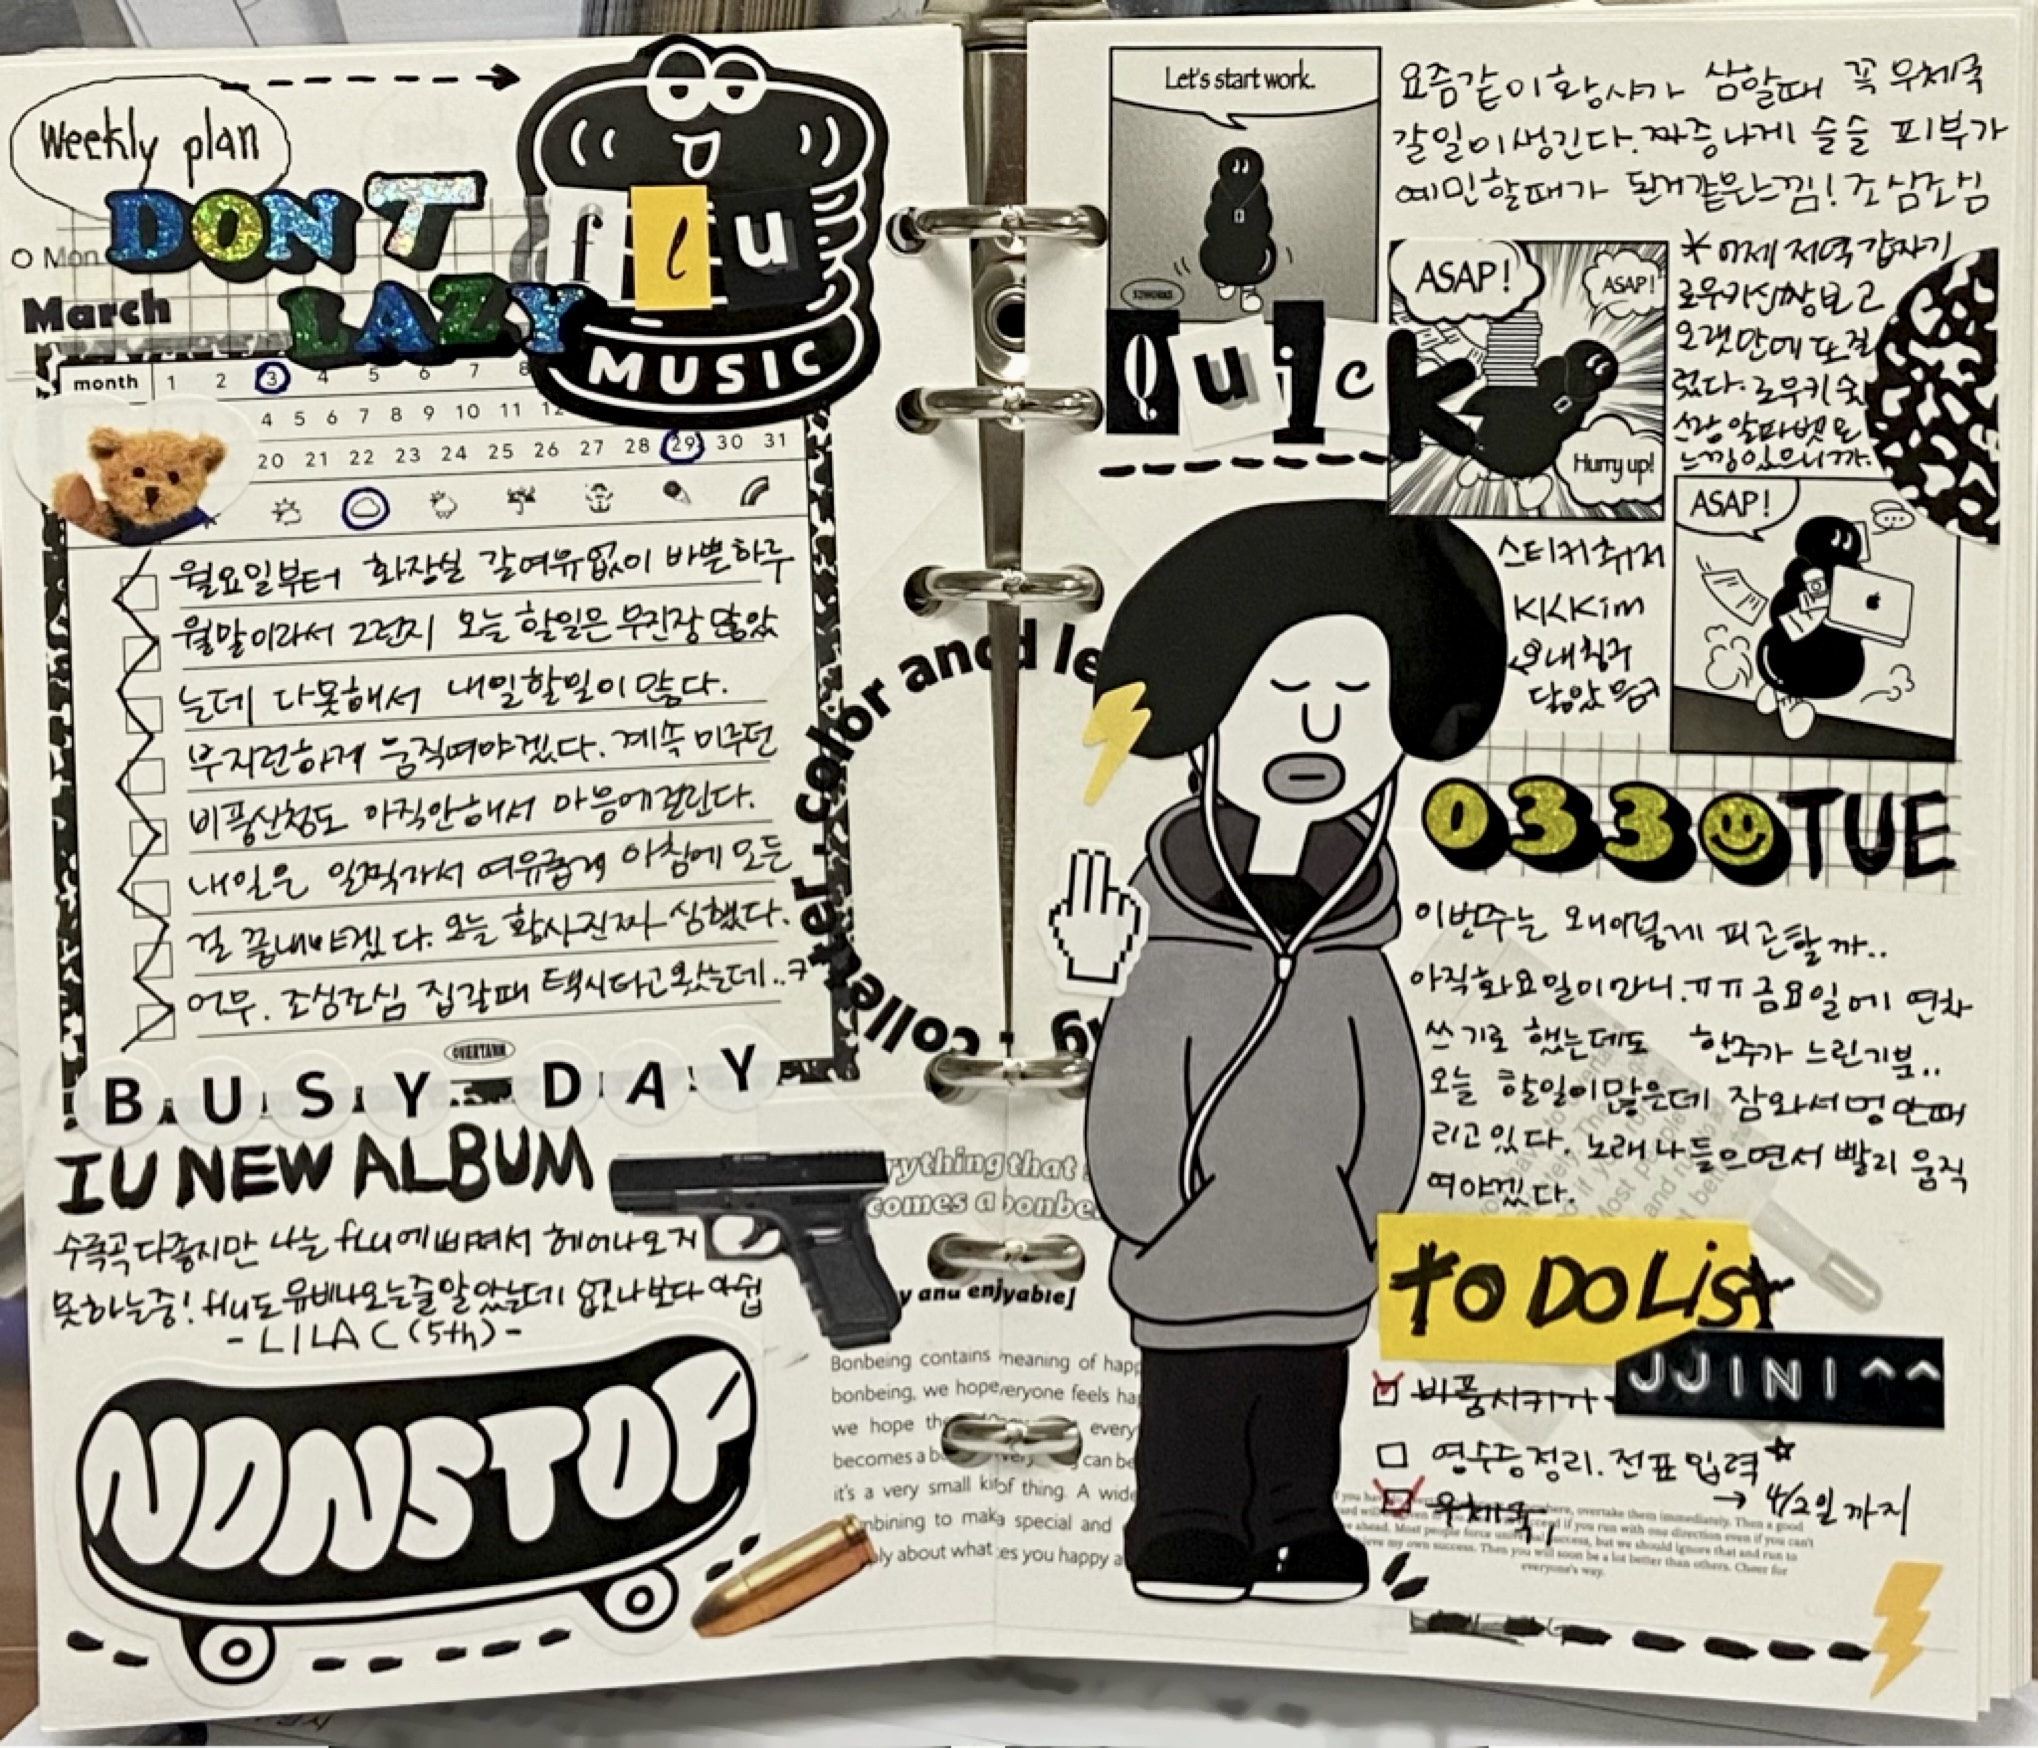 Weekly plan
DON'T
LAZY
Mon
March
flu
MUSIC
month 1 2 3 4 5 6 7 8
4 5 6 7 8 9 10 11 12
20 21 22 23 24 25 26 27 28 29 30 31
월요일부터 화장실 갈여유없이 바쁜하루
월말이라서 그런지 오늘 할일은 무진장 많았
는데 다못해서 내일할일이 많다.
부지런하게 움직여야겠다. 계속 미루던
비품신청도 아직안해서 마음에걸린다.
내일은 일찍가서 여유롭게 아침에 모든
걸 끝내야겠다. 오늘 황사진짜 심했다.
어우. 조심조심 집갈때 택시타고왔는데..ㅋ
OVERTARN
BUSY DAY
IU NEW ALBUM
수록곡 다좋지만 나는 flu에빠져서 헤어나오지
못하는중! flu도 뮤비나오는줄알았는데 없나보다 아쉽
-LILAC (5th)-
NONSTOP
color and le
collet
ter
rything that
comes a bonbe
y and enjyable]
Bonbeing contains meaning of happ
bonbeing, we hope everyone feels ha
we hope th every
becomes a b very can be
it's a very small ki of thing. A wide
nbining to mak a special and
ly about what es you happy a
Let's start work.
요즘같이황사가 심할때 꼭 우체국
갈일이생긴다. 짜증나게 슬슬 피부가
예민할때가 된거같은느낌! 조심조심
Quick
ASAP!
ASAP!
Hurry up!
* 어제 저녁 갑자기
로우키신짱보고
오랫만에 또질
렀다. 로우키 쉿
사랑 알파벳모
느낌있으니까.
ASAP!
스티커취저
KKKim
내친구
닮았음ㅋ
0330 TUE
이번주는 왜이렇게 피곤할까..
아직화요일이라니.ㅠㅠ 금요일에 연차
쓰기로 했는데도 한주가 느린기분..
오늘 할일이많은데 잠와서멍만때
리고있다. 노래나들으면서 빨리 움직
여야겠다.
TO DO List
JJINI^^
비품시키기
영수증정리. 전표입력☆
→ 4/2일까지
우체국,
you have overtake them immediately. Then a good
if you run with one direction even if you can't
ahead. Most people force success, but we should ignore that and run to
my own success. Then you will soon be a lot better than others. Cheer for
everyone's way.